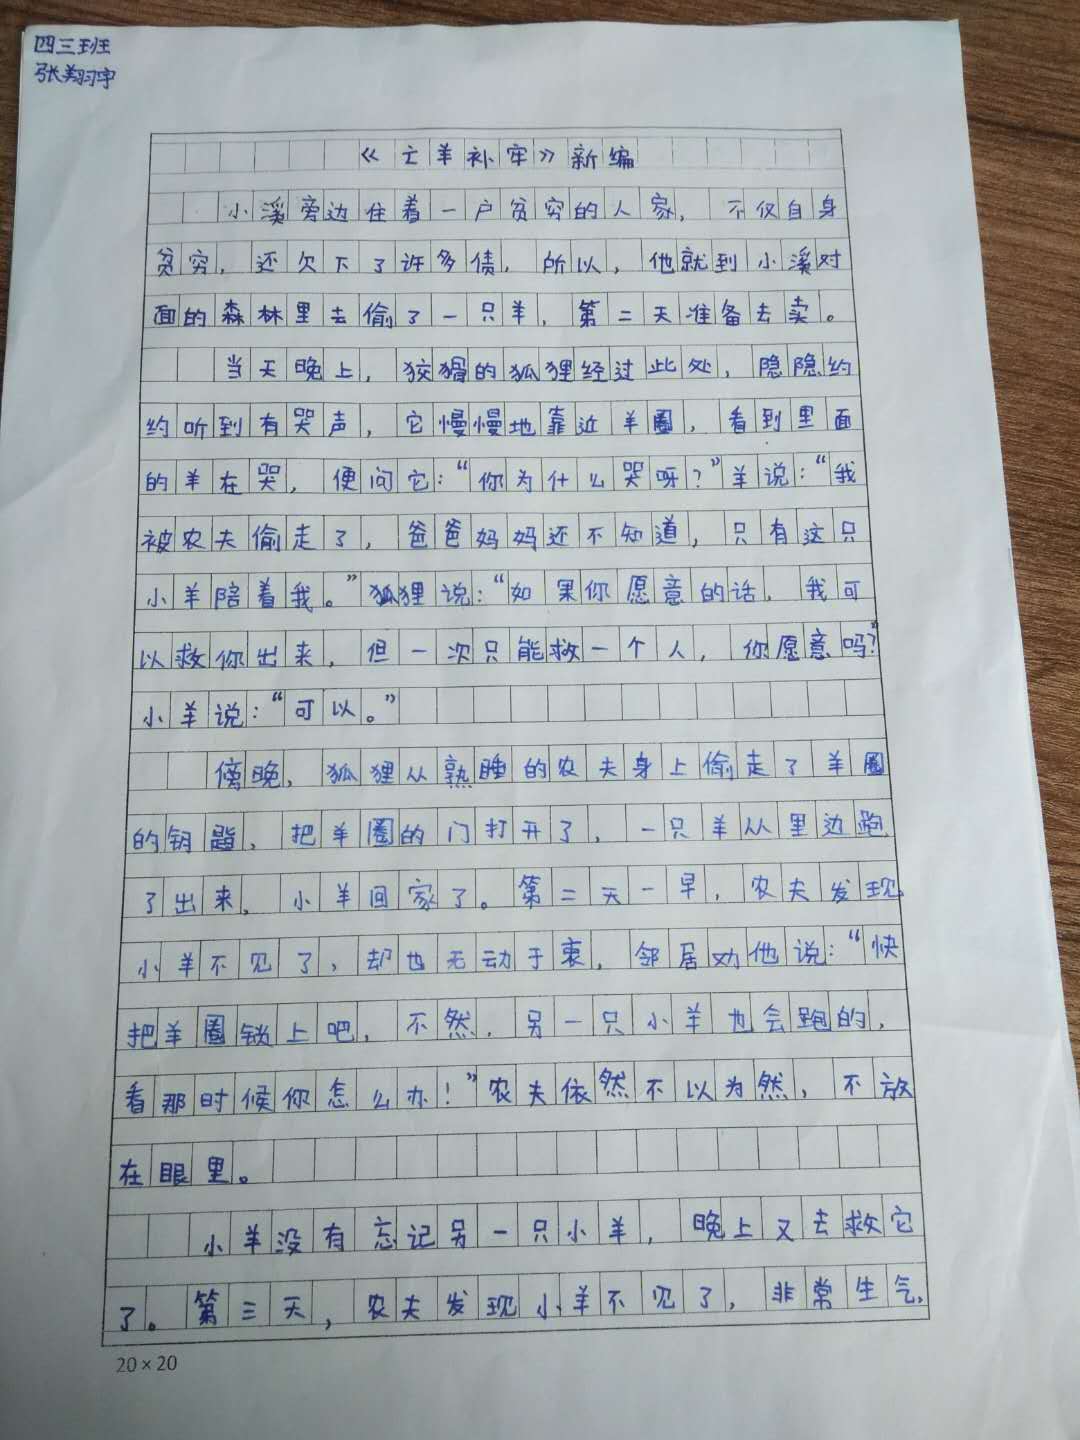 四三班
张翔宇
《亡羊补牢》新编
小溪旁边住着一户贫穷的人家，不仅自身
贫穷，还欠下了许多债，所以，他就到小溪对
面的森林里去偷了一只羊，第二天准备去卖。
当天晚上，狡猾的狐狸经过此处，隐隐约
约听到有哭声，它慢慢地靠近羊圈，看到里面
的羊在哭，便问它：“你为什么哭呀？”羊说：“我
被农夫偷走了，爸爸妈妈还不知道，只有这只
小羊陪着我。”狐狸说：“如果你愿意的话，我可
以救你出来，但一次只能救一个人，你愿意吗？”
小羊说：“可以。”
傍晚，狐狸从熟睡的农夫身上偷走了羊圈
的钥匙，把羊圈的门打开了，一只羊从里边跑
了出来，小羊回家了。第二天一早，农夫发现
小羊不见了，却也无动于衷，邻居劝他说：“快
把羊圈锁上吧，不然，另一只小羊也会跑的，
看那时候你怎么办！”农夫依然不以为然，不放
在眼里。
小羊没有忘记另一只小羊，晚上又去救它
了。第三天，农夫发现小羊不见了，非常生气，
20×20